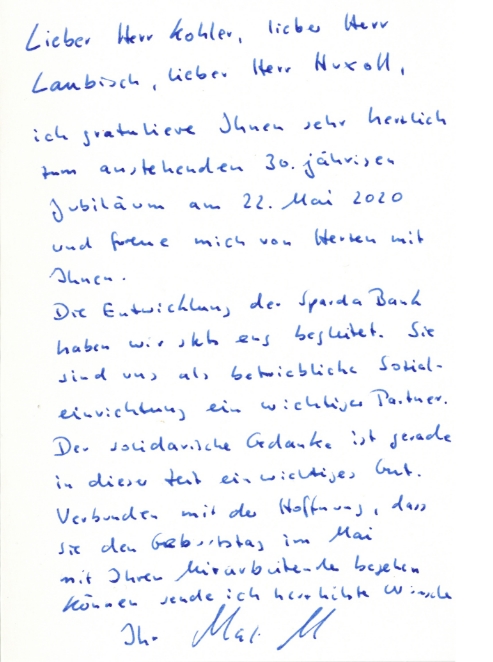 Lieber Herr Kohler, lieber Herr
Laubisch, lieber Herr Huxoll,
ich gratuliere Ihnen sehr herzlich
zum anstehenden 30. jährigen
Jubiläum am 22. Mai 2020
und freue mich von Herzen mit
Ihnen.
Die Entwicklung der Sparda Bank
haben wir stets eng begleitet. Sie
sind uns als betriebliche Sozial-
einrichtung ein wichtiger Partner.
Der solidarische Gedanke ist gerade
in dieser Zeit ein wichtiges Gut.
Verbunden mit der Hoffnung, dass
Sie den Geburtstag im Mai
mit Ihren Mitarbeitende begehen
können sende ich herzlichste Wünsche
Ihr